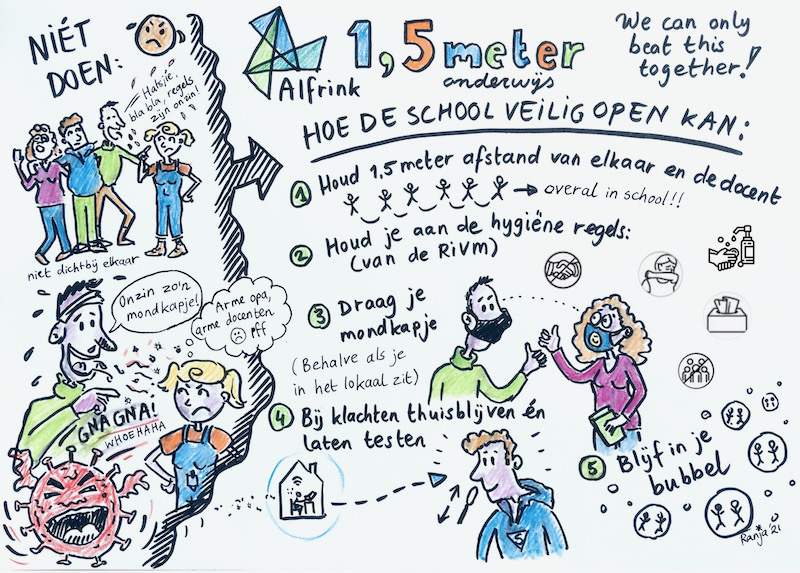 NIÉT
DOEN:
Hatsjie,
bla bla, regels
zijn onzin!
niet dichtbij elkaar
Onzin zo'n
mondkapje!
Arme opa,
arme docenten
pff
GNAGNA!
WHOEHAHA
Alfrink
1,5 meter
onderwijs
We can only
beat this
together!
HOE DE SCHOOL VEILIG OPEN KAN:
1 Houd 1,5 meter afstand van elkaar en de docent
overal in school!!
2 Houd je aan de hygiëne regels:
(van de RIVM)
3 Draag je
mondkapje
(Behalve als je
in het lokaal zit)
4 Bij klachten thuisblijven én
laten testen
S
5 Blijf in je
bubbel
Ranja '21